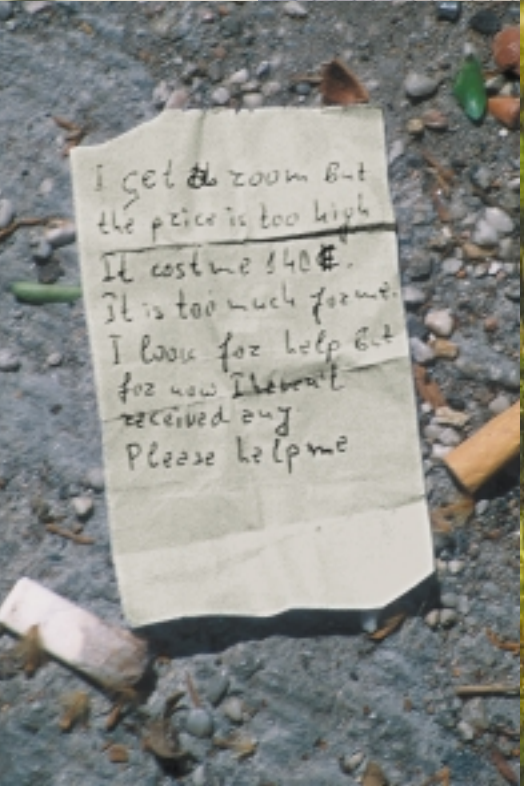 I get a room But
the price is too high
It cost me 140€.
It is too much for me.
I look for help But
for now I haven't
received any
Please help me